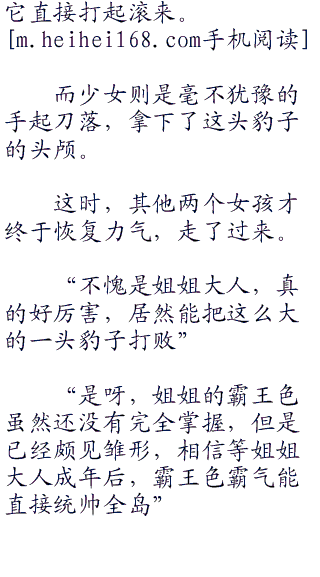 它直接打起滚来。
[m.heihei168.com手机阅读]
而少女则是毫不犹豫的
手起刀落，拿下了这头豹子
的头颅。
这时，其他两个女孩才
终于恢复力气，走了过来。
“不愧是姐姐大人，真
的好厉害，居然能把这么大
的一头豹子打败”
“是呀，姐姐的霸王色
虽然还没有完全掌握，但是
已经颇见雏形，相信等姐姐
大人成年后，霸王色霸气能
直接统帅全岛”